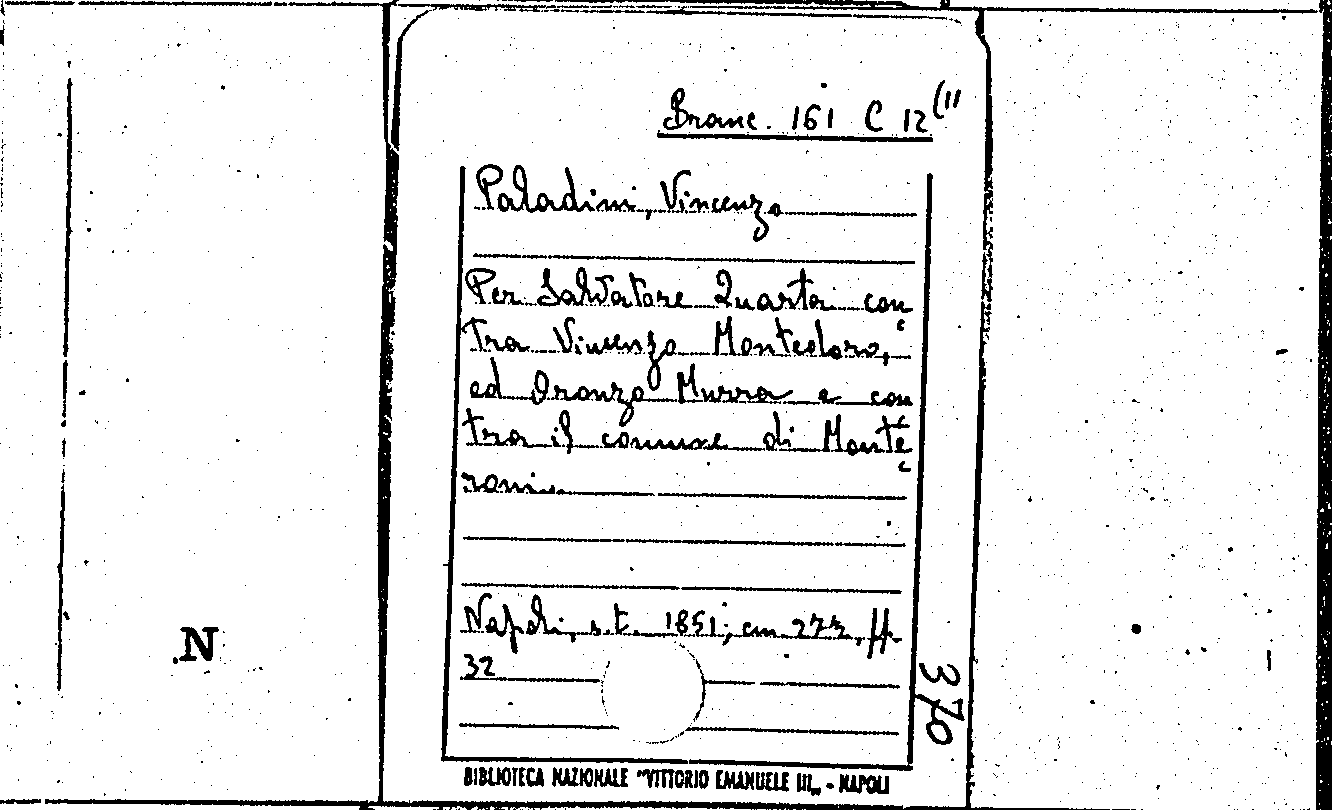 Branc. 161 C 12 (11
Paladini, Vincenzo
Per Salvatore Quarta con
tra Vincenzo Monteoloro,
ed Oronzo Murra e con
tra il comune di Monte
roni.
Napoli, s.t. 1851; cm 27½, pp.
32
370
N
BIBLIOTECA NAZIONALE "VITTORIO EMANUELE III„ - NAPOLI